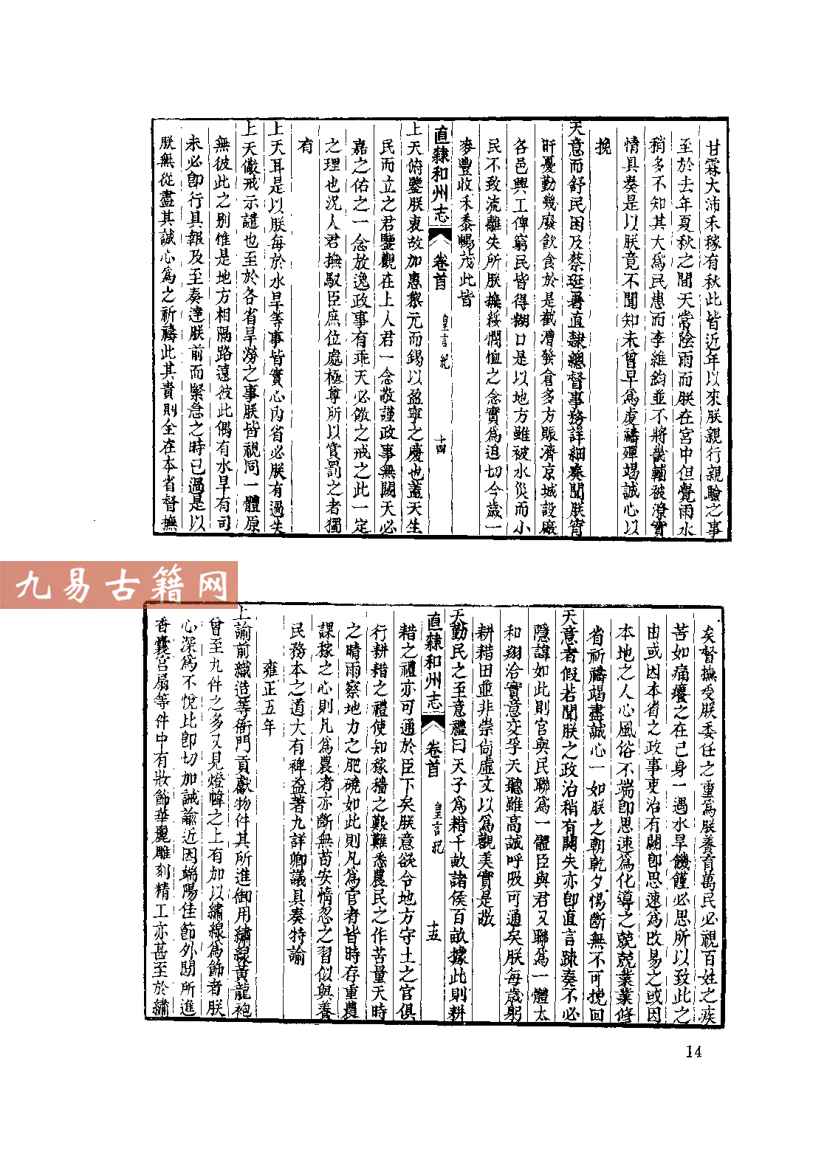 甘霖大沛禾稼有秋此皆近年以來朕親行親驗之事
至於去年夏秋之間天常陰雨而朕在宮中但覺雨水
稍多不知其大為民患而李維鈞並不將畿輔被潦實
情具奏是以朕竟不聞知未曾早為虔禱殫竭誠心以
挽
天意而舒民困及蔡珽署直隸總督事務詳細奏聞朕宵
旰憂勤幾廢飲食於是截漕發倉多方賑濟京城設廠
各邑興工俾窮民皆得餬口是以地方雖被水災而小
民不致流離失所朕撫綏憫恤之念實為迫切今歲一
麥豐收禾黍暢茂此皆
直隸和州志
卷首
皇言紀
十四
上天俯鑒朕衷故加惠黎元而錫以盈寧之慶也蓋天生
民而立之君鑒觀在上人君一念敬謹政事無闕天必
嘉之佑之一念放逸政事有乖天必儆之戒之此一定
之理也況人君撫馭臣庶位處極尊所以賞罰之者獨
有
上天耳是以朕每於水旱等事皆實心內省必朕有過失
上天儆戒示譴也至於各省旱澇之事朕皆視同一體原
無彼此之別惟是地方相隔路遠彼此偶有水旱有司
未必卽行具報及至奏達朕前而緊急之時已過是以
朕無從盡其誠心為之祈禱此其責則全在本省督撫
九易古籍网
矣督撫受朕委任之重為朕養育萬民必視百姓之疾
苦如痛癢之在己身一遇水旱饑饉必思所以致此之
由或因本省之政事吏治有闕卽思速為改易之或因
本地之人心風俗不端卽思速為化導之兢兢業業修
省祈禱竭盡誠心一如朕之朝乾夕惕斷無不可挽回
天意者假若聞朕之政治稍有闕失亦卽直言疏奏不必
隱諱如此則官與民聯為一體臣與君又聯為一體太
和翔洽實意交孚天聽雖高誠呼吸可通矣朕每歲躬
耕耤田並非崇尚虛文以為觀美實是敬
天勤民之至意禮曰天子為耤千畝諸侯百畝據此則耕
直隸和州志
卷首
皇言紀
十五
耤之禮亦可通於臣下矣朕意欲令地方守土之官俱
行耕耤之禮使知稼穡之艱難悉農民之作苦量天時
之晴雨察地力之肥磽如此則凡為官者皆時存重農
課稼之心則凡為農者亦斷無苟安惰忽之習似與養
民務本之道大有裨益著九詳卿議具奏特諭
雍正五年
上諭前織造等衙門貢獻物件其所進御用繡線黃龍袍
曾至九件之多又見燈幃之上有加以繡線為飾者朕
心深為不悅比卽切加誡諭近因端陽佳節外間所進
香囊宮扇等件中有妝飾華麗雕刻精工亦甚至於繡
14